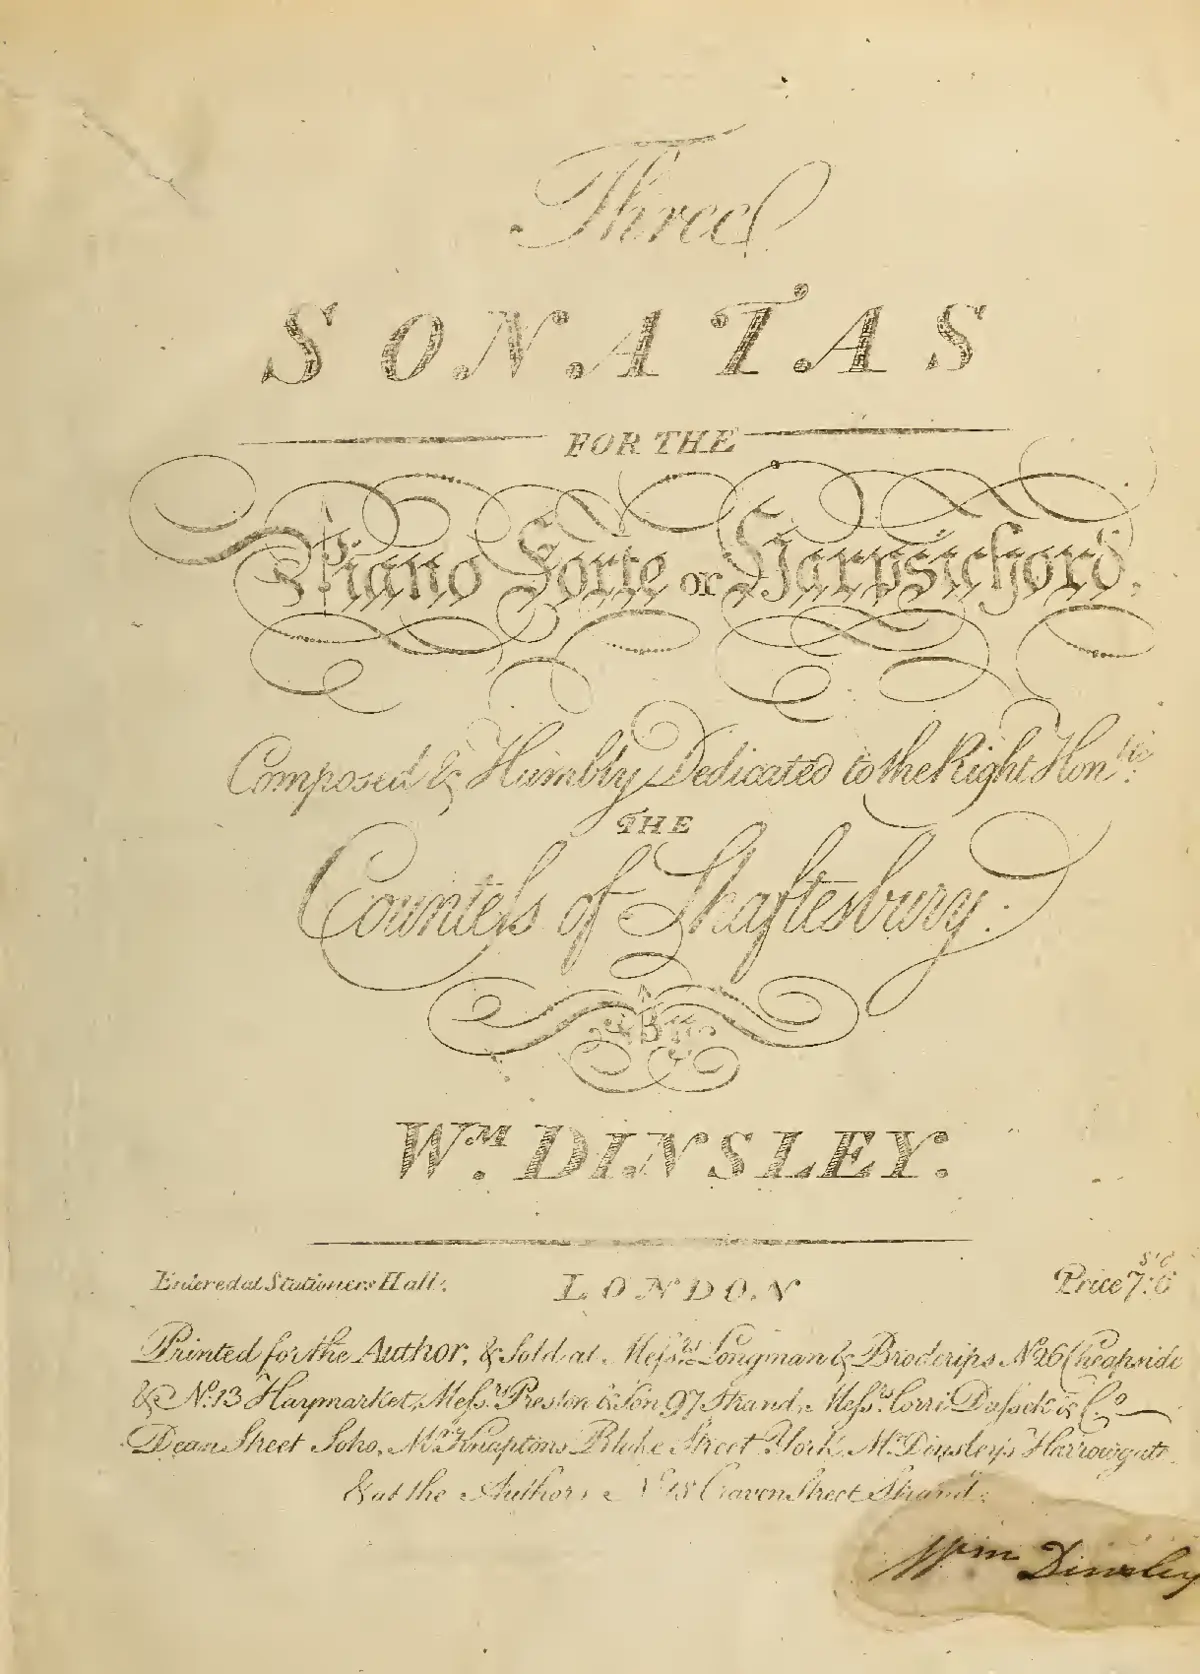 Three
SONATAS
FOR THE
Piano Forte or Harpsichord,
Composed & Humbly Dedicated to the Right Hon.ble
THE
Countess of Shaftesbury.
By
Wm. DINSLEY.
Entered at Stationers Hall. LONDON Price 7s:6d
Printed for the Author, & Sold at Messrs. Longman & Broderips No. 26 Cheapside
& No. 13 Haymarket, Messrs. Preston & Son 97 Strand, Messrs. Corri Dussek & Co.
Dean Street Soho, Mr. Knaptons Blake Street York, Mr. Dinsley's Harrowgate
& at the Authors No. Craven Street Strand.
Wm Dinsley